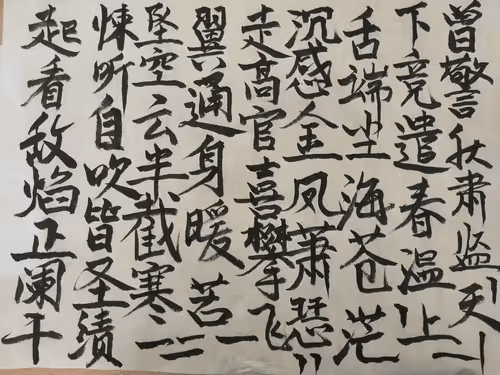 曾警秋肃监天
下竞遣春温上
舌端尘海苍茫
沉感金凤萧恐
走高官喜攀飞
翼通身暖苦
坠空云半截寒
悚听自吹皆圣绩
起看敌焰正阑干